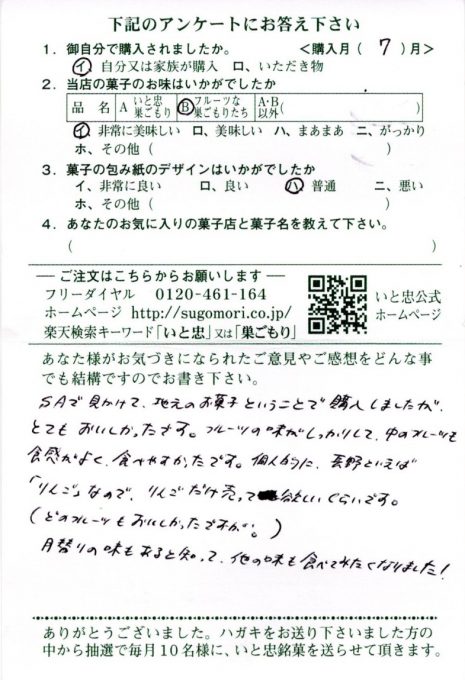 下記のアンケートにお答え下さい
1．御自分で購入されましたか。 ＜購入月（ 7 ）月＞
イ、自分又は家族が購入 ロ、いただき物
2．当店の菓子のお味はいかがでしたか
品 名 A いと忠巣ごもり B フルーツな巣ごもりたち A・B以外（ ）
イ、非常に美味しい ロ、美味しい ハ、まあまあ ニ、がっかり
ホ、その他（ ）
3．菓子の包み紙のデザインはいかがでしたか
イ、非常に良い ロ、良い ハ、普通 ニ、悪い
ホ、その他（ ）
4．あなたのお気に入りの菓子店と菓子名を教えて下さい。
（ ）
― ご注文はこちらからお願いします ―
フリーダイヤル 0120-461-164
ホームページ http://sugomori.co.jp/
楽天検索キーワード「いと忠」又は「巣ごもり」
いと忠公式
ホームページ
あなた様がお気づきになられたご意見やご感想をどんな事
でも結構ですのでお書き下さい。
SAで見かけて、地元のお菓子ということで購入しましたが、
とてもおいしかったです。フルーツの味がしっかりして、中のフルーツも
食感がよく、食べやすかったです。個人的に、長野といえば
「りんご」なので、りんごだけ売って欲しいくらいです。
（どのフルーツもおいしかったですが。）
月替りの味もあると知って、他の味も食べてみたくなりました！
ありがとうございました。ハガキをお送り下さいました方の
中から抽選で毎月10名様に、いと忠銘菓を送らせて頂きます。